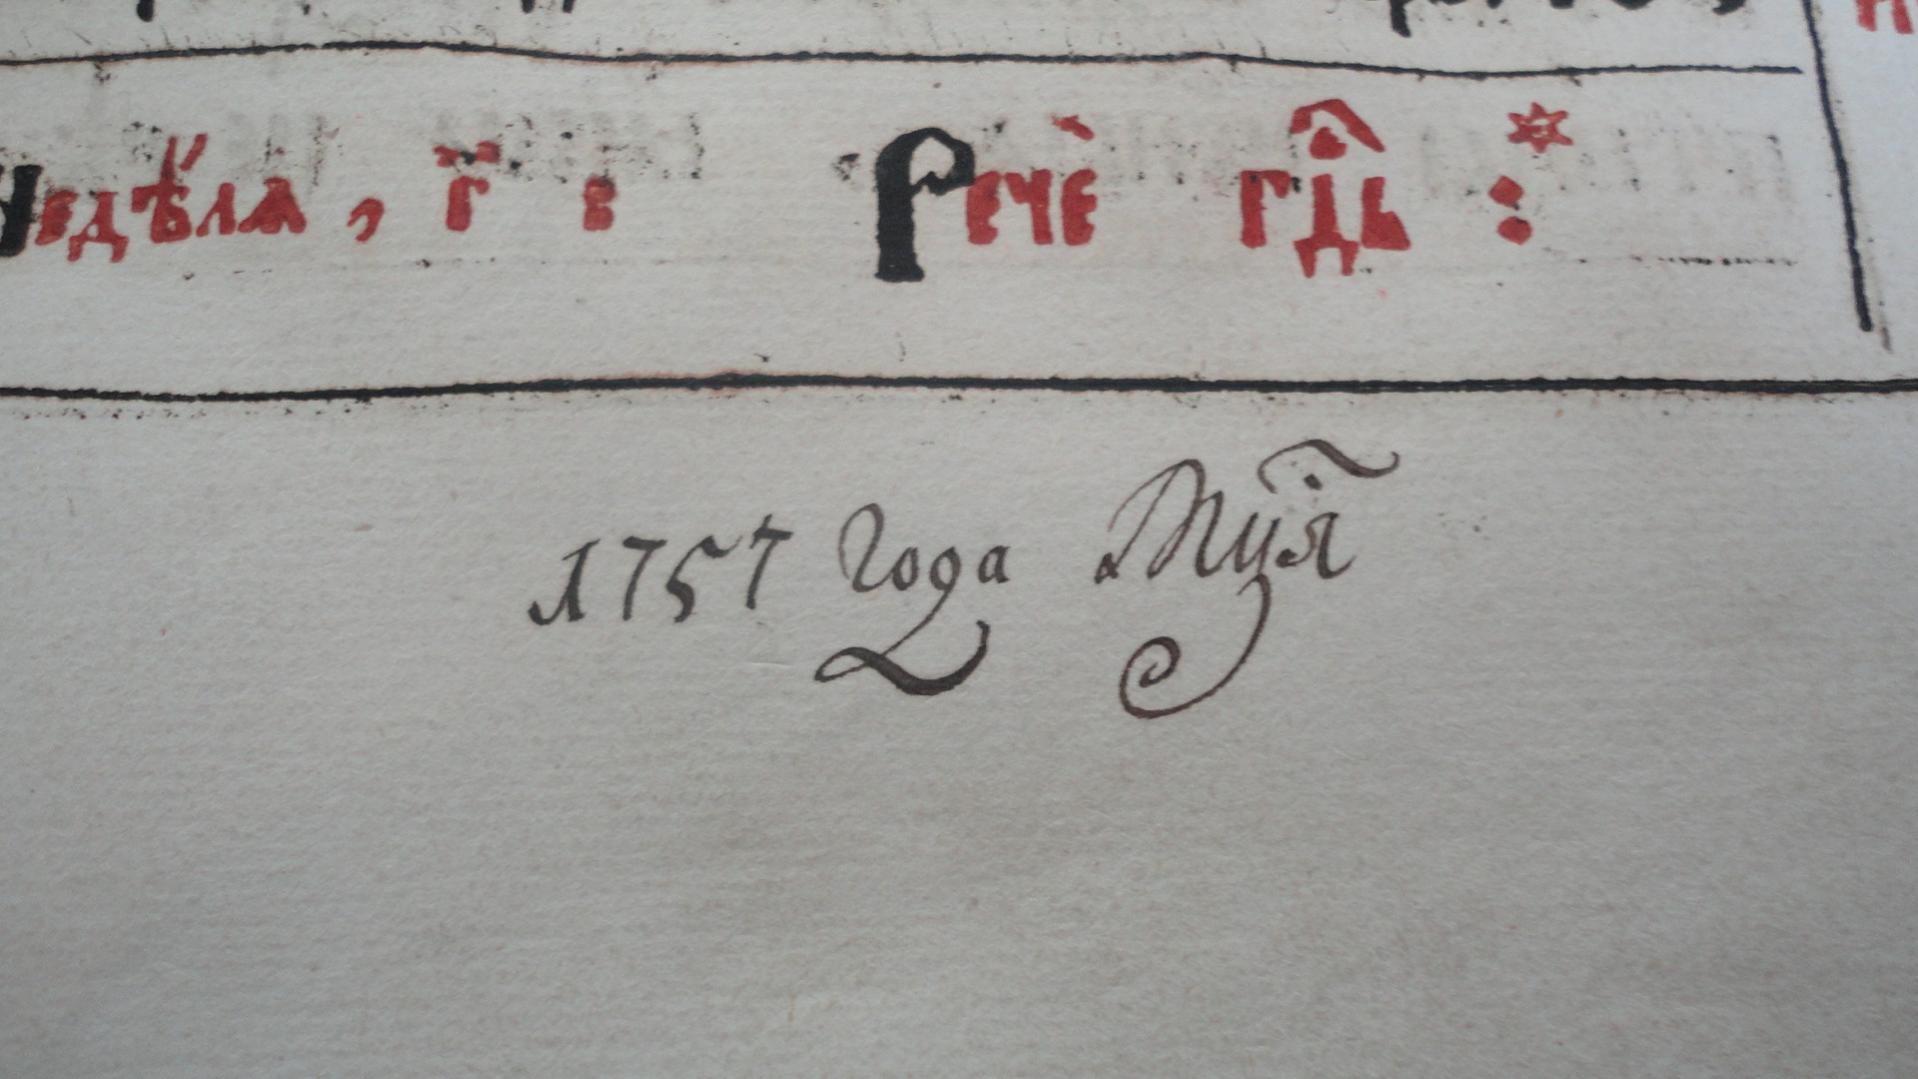 Недѣлѧ, г҃ : Речѐ гд҇ь :
1757 года Мцⷭ҇а